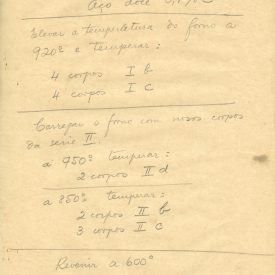 Aço doce
Elevar a temperatura do forno a
920° e temperar:
4 corpos I b
4 corpos I c
Carregar o forno com novos corpos
da serie II.
a 950° temperar:
2 corpos II d
a 850° temperar:
2 corpos II b
3 corpos II c
Revenir a 600°